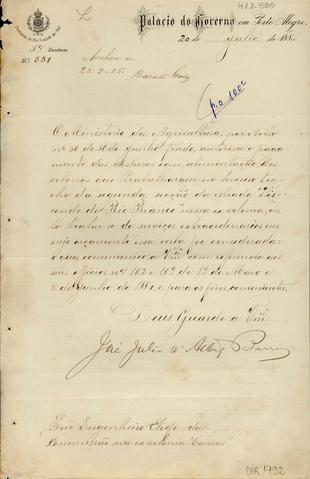 411-886
L
Palacio do Governo em Porto Alegre,
20 de Julho de 188
5ª Directoria
Nº 551
Archive-se
25-7-85.
O Ministerio da Agricultura, por Aviso
nº 30 de 30 de Junho findo, autorisa o paga-
mento das despezas com alimentação dos
colonos que trabalharam no terceiro tre-
cho da segunda secção da estrada Vis-
conde do Rio Branco nessa ex-colonia, vis-
to tratar-se de serviços extraordinarios em
cujo orçamento essa verba foi considerada:
o que communico a Vmcê com referencia aos
seus officios nº 102 e 109 de 12 de Maio e
2 de Junho de 188 e para os fins convenientes.
Deus Guarde a Vmcê
José Julio d'
Snr Engenheiro Chefe da
Commissão na ex colonia "Caxias".
DIR 1492